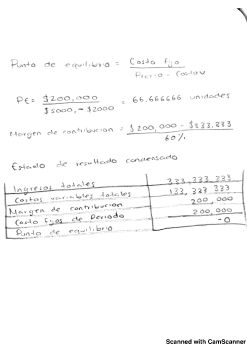 Punto de equilibrio = Costo fijo
Precio - Costov
PE = $200,000 = 66.666666 unidades
$5000,- $2000
Margen de contribucion = $200,000 - $333.333
60%
Estado de resultado condensado
Ingresos totales 333,333,333
Costos variables totales 133,333 333
Margen de contribucion 200,000
Costo fijos de Periodo 200,000
Punto de equilibrio -0
Scanned with CamScanner